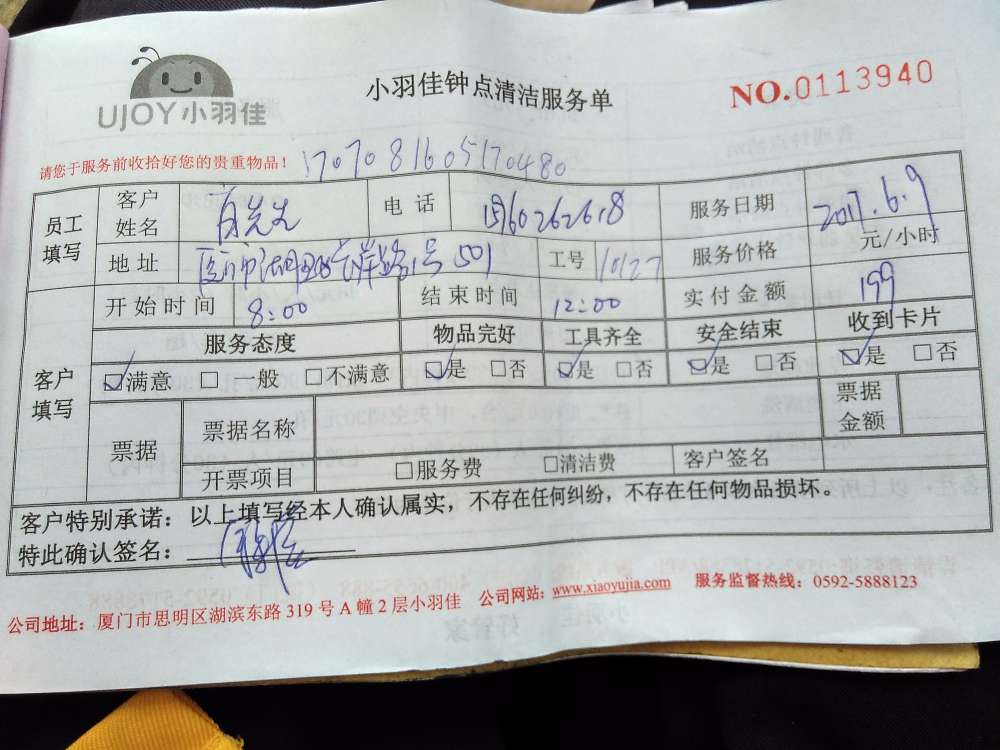 UJOY小羽佳
小羽佳钟点清洁服务单
NO.0113940
请您于服务前收拾好您的贵重物品！
1707081605170480
员工填写 客户姓名 电话 服务日期 2017.6.9
地址 1号501 工号 10127 服务价格 元/小时
开始时间 8:00 结束时间 12:00 实付金额 199
客户填写 服务态度 物品完好 工具齐全 安全结束 收到卡片
☑满意 □一般 □不满意 ☑是 □否 ☑是 □否 ☑是 □否 ☑是 □否
票据 票据名称 票据金额
开票项目 □服务费 □清洁费 客户签名
客户特别承诺：以上填写经本人确认属实，不存在任何纠纷，不存在任何物品损坏。
特此确认签名：
公司地址：厦门市思明区湖滨东路319号A幢2层小羽佳 公司网站：www.xiaoyujia.com 服务监督热线：0592-5888123